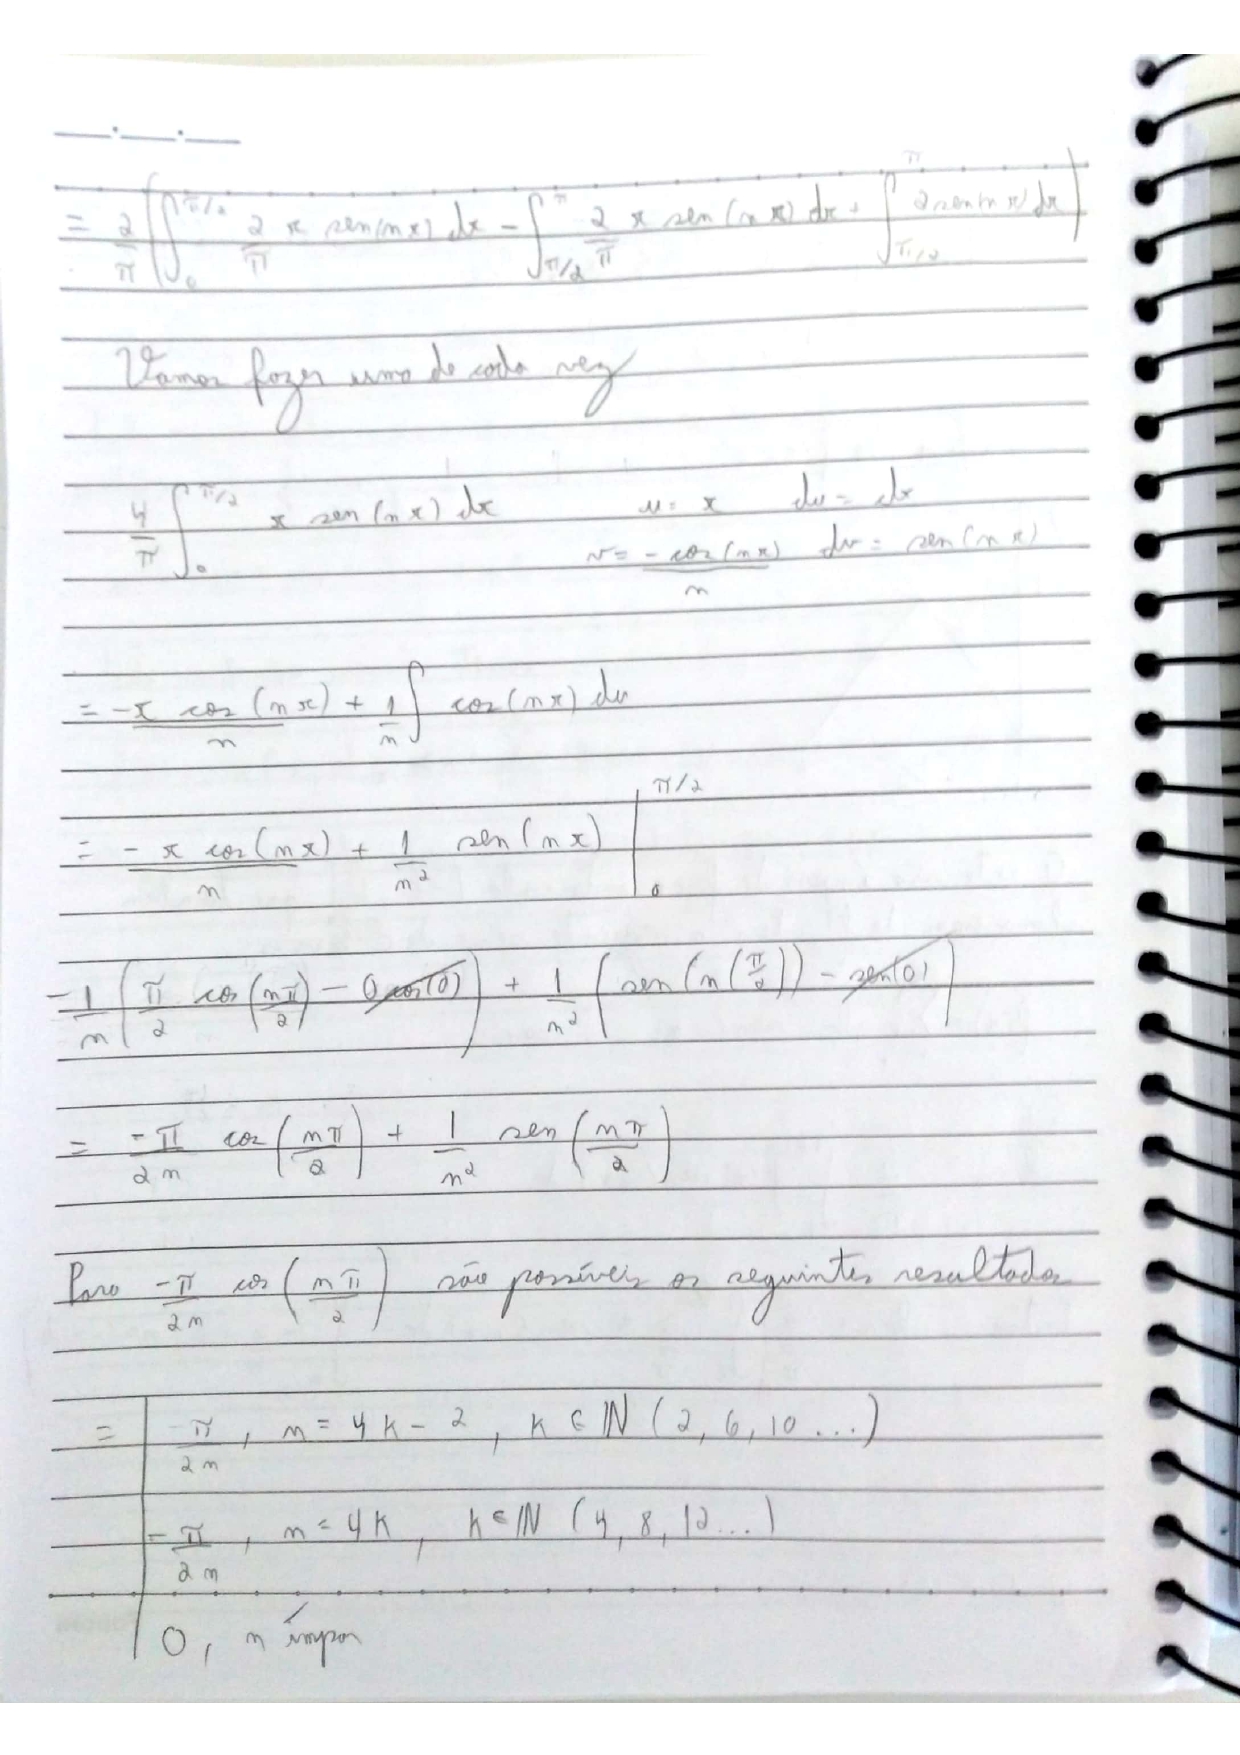 = 2/π ( ∫_0^{π/2} 2/π x sen(nx) dx - ∫_{π/2}^{π} 2/π x sen(nx) dx + ∫_{π/2}^{π} 2 sen(nx) dx )
Vamos fazer uma de cada vez
4/π ∫_0^{π/2} x sen(nx) dx    u = x    du = dx
v = -cos(nx)/n    dv = sen(nx)
= -x cos(nx)/n + 1/n ∫ cos(nx) du
= -x cos(nx)/n + 1/n² sen(nx) |_0^{π/2}
-1/n ( π/2 cos(nπ/2) - 0 cos(0) ) + 1/n² ( sen(n(π/2)) - sen(0) )
= -π/2n cos(nπ/2) + 1/n² sen(nπ/2)
Para -π/2n cos(nπ/2) são possíveis os seguintes resultados
= | π/2n , n = 4k - 2 , k ∈ ℕ (2, 6, 10 ...)
-π/2n , n = 4k , k ∈ ℕ (4, 8, 12 ...)
0, n ímpar